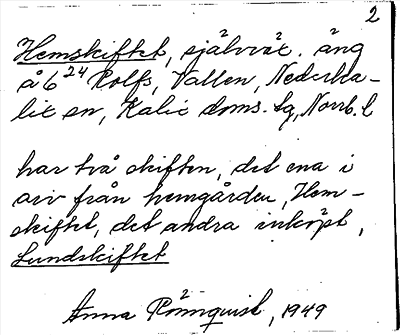 2
Hemskiftet, självvär. äng
å 6²⁴ Rolfs, Vallen, Nederka-
lix sn, Kalix doms. lg, Norrb. l
har två skiften, det ena i
arv från hemgården, Hem-
skiftet, det andra inköpt,
Lundskiftet
Anna Rönnquist, 1949